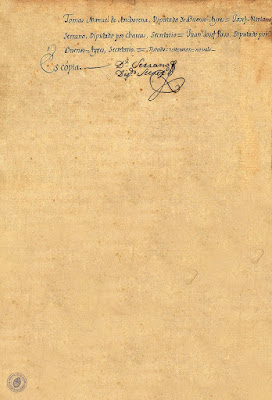 Tomas Manuel de Anchorena, Diputado de Buenos Ayres = José Mariano
Serrano, Diputado por Charcas, Secretario = Juan José Paso, Diputado por
Buenos-Ayres, Secretario =
Es copia
Dr. Serrano
Dip.o Secret.o